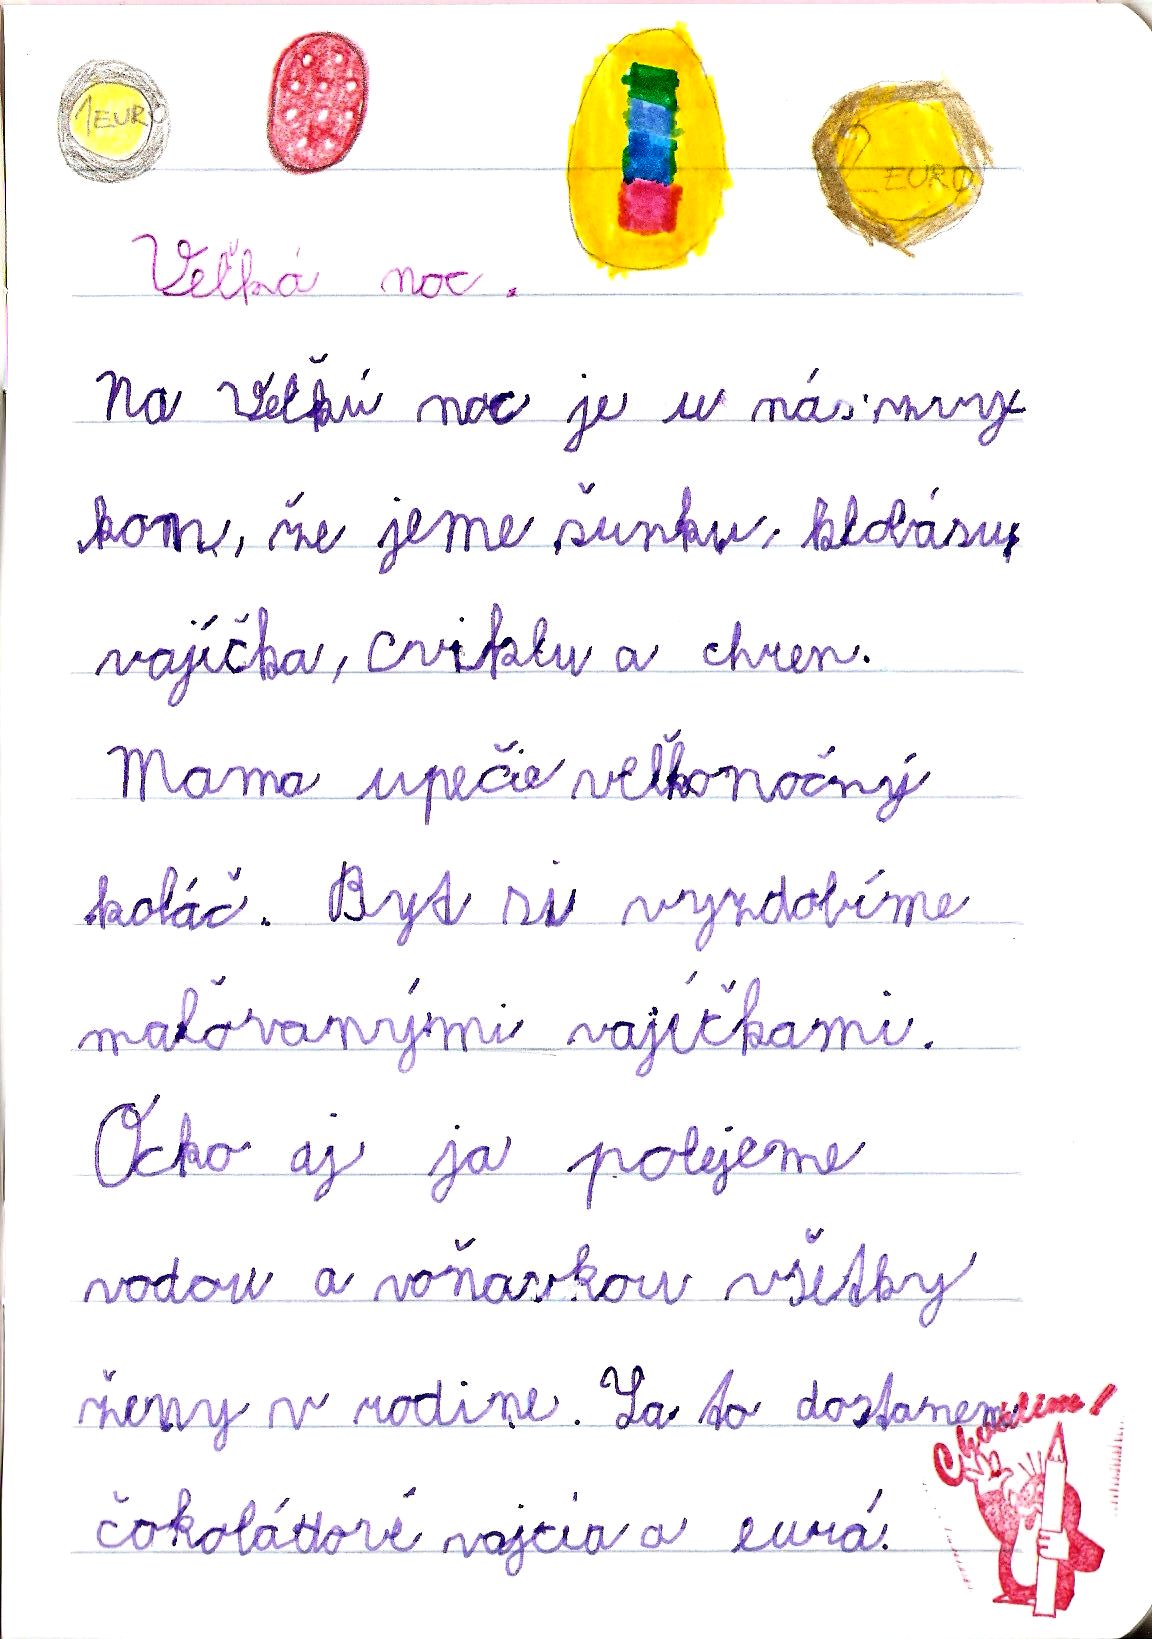 1 EURO
2 EURO
Veľká noc.
Na Veľkú noc je u nás zvy
kom, že jeme šunku, klobásu,
vajíčka, cviklu a chren.
Mama upečie veľkonočný
koláč. Byt si vyzdobíme
maľovanými vajíčkami.
Ocko aj ja polejeme
vodou a voňavkou všetky
ženy v rodine. Za to dostanem
čokoládové vajcia a eurá.
Chválim!